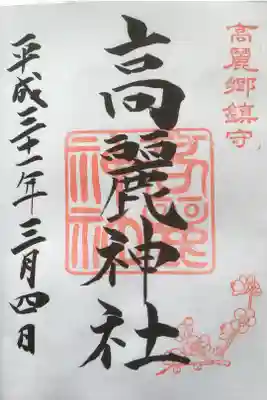 高麗郷鎮守
高麗神社
平成三十一年三月四日